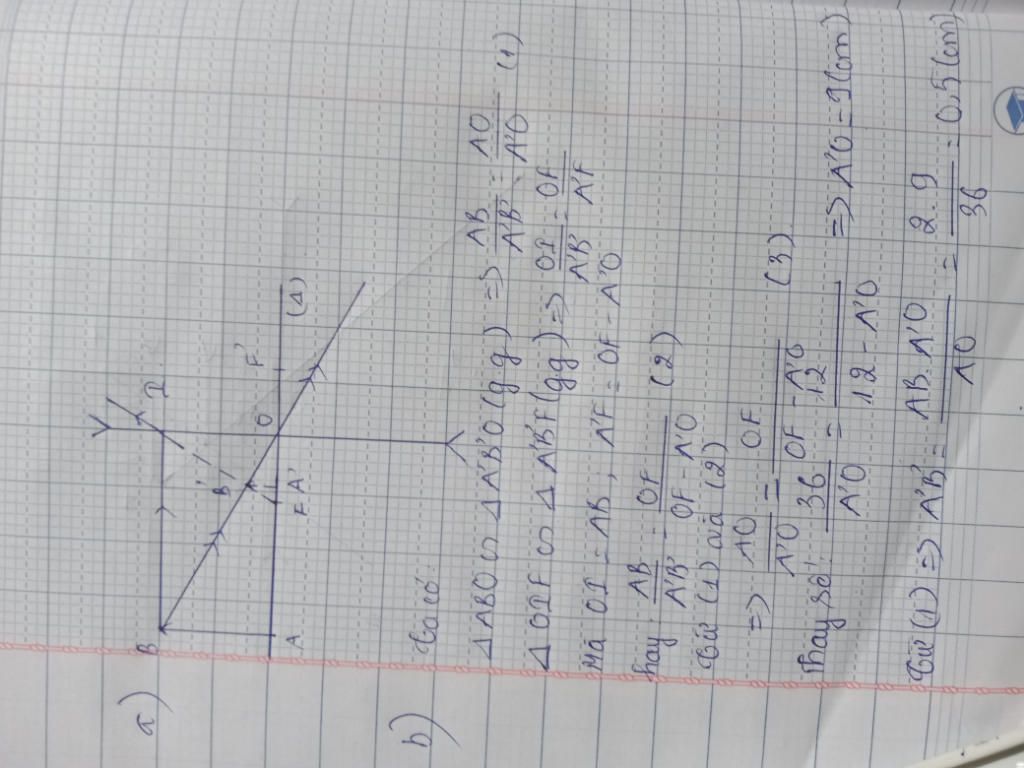 a)
B
I
B'
O
F'
(Δ)
A
F
A'
b)
Ta có:
ΔABO ∽ ΔA'B'O (g.g) => AB/A'B' = AO/A'O (1)
ΔOIF ∽ ΔA'B'F (gg) => OI/A'B' = OF/A'F
Mà OI = AB, A'F = OF - A'O
hay: AB/A'B' = OF/OF - A'O (2)
Từ (1) và (2)
=> AO/A'O = OF/OF - A'O (3)
Thay số: 36/A'O = 12/12 - A'O => A'O = 9 (cm)
Từ (1) => A'B' = AB.A'O/AO = 2.9/36 = 0,5 (cm)